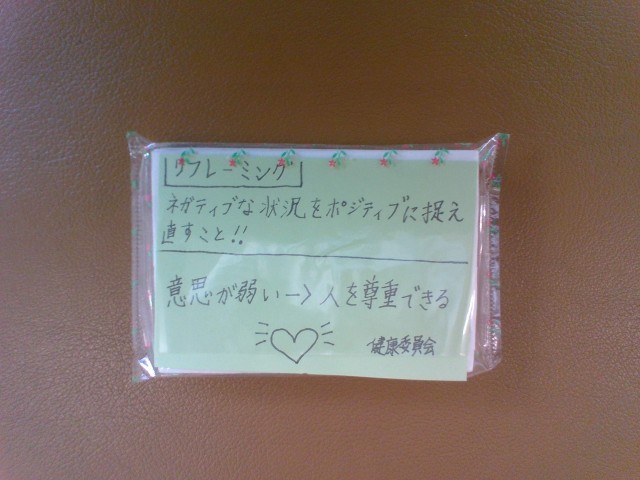 リフレーミング
ネガティブな状況をポジティブに捉え
直すこと!!
意思が弱い->人を尊重できる
健康委員会